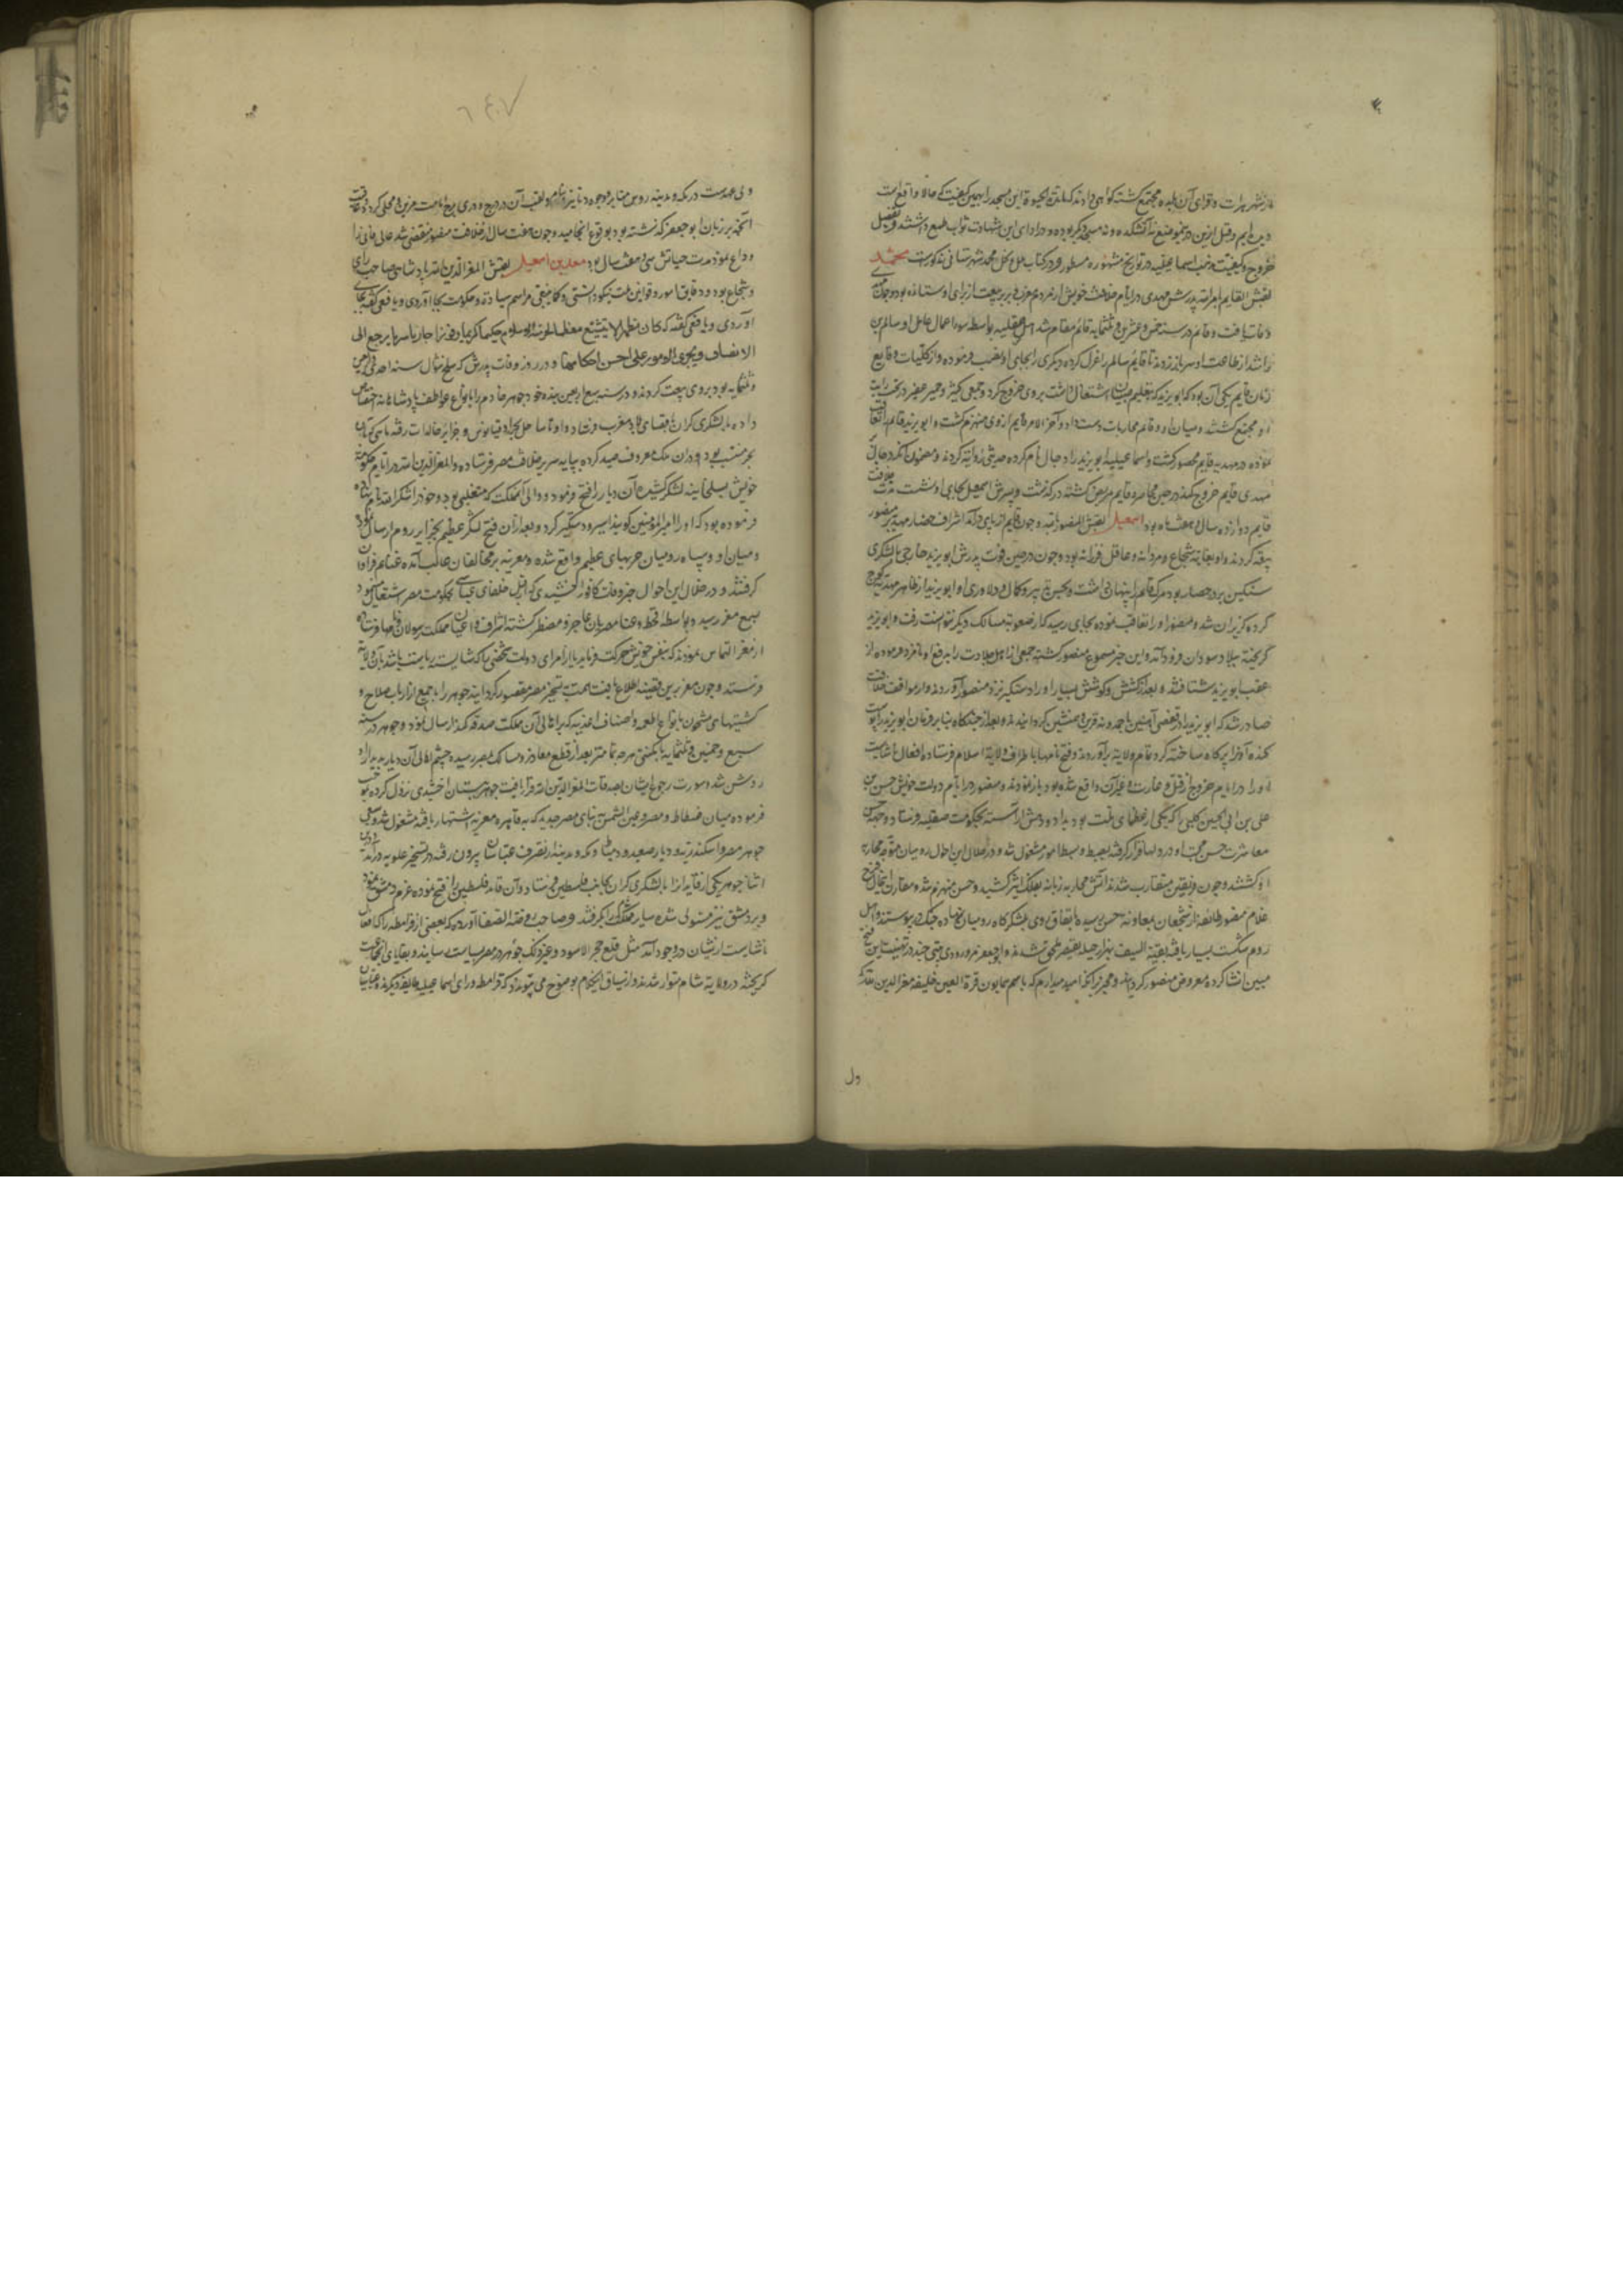 از شهر هرات و قرای آن بلده مجتمع گشته گواهی دادند که این مسجد را بهمین کیفیت که حالا واقع است
دیده‌ایم و قبل ازین درین موضع نه آتشکده و نه مسجد دیگر بوده و در ادای این شهادت ثواب طمع داشتند و تفصیل
خروج و کیفیت مذهب اسماعیلیه در تواریخ مشهوره مسطور و در کتاب ملل و نحل محمد شهرستانی مذکورست محمد
لقبش القایم بامر الله پدرش مهدی در ایام خلافت خویش از مردم مغرب بیعت از برای او ستانده بود و چون مهدی
وفات یافت و قائم در سنه خمس و عشرین و ثلثمایه قائم مقام شد اهل صقلیه بواسطه سوء اعمال عامل او سالم بن
راشد از طاعت او سر باز زدند تا قائم سالم را عزل کرده دیگری را بجای او نصب فرموده و از کلیات وقایع
زمان قایم یکی آن بود که ابو یزید که بتعلیم صبیان اشتغال داشت بر وی خروج کرد و جمعی کثیر و جمی غفیر در تحت رایت
او مجتمع گشتند و میان او و قائم محاربات دست داد و آخر الامر قایم از وی منهزم گشت و ابو یزید قایم را تعاقب
نموده در مهدیه قایم محصور گشت و اسماعیلیه ابو یزید را دجال نام کرده حدیثی روایت کردند و مضمون آنکه دجال بر
مهدی یا قایم خروج کند در حین محاصره قایم مریض گشته درگذشت و پسرش اسمعیل بجای او نشست مدت خلافت
قایم دوازده سال و هفت ماه بود اسمعیل لقبش المنصور بالله بود چون قایم از پای درآمد اشراف حضار مهدیه بر منصور
بیعت کردند و او بغایت شجاع و مردانه و عاقل و فرزانه بود و چون در حین فوت پدرش ابو یزید خارجی با لشکری
سنگین بر در حصار بود مرگ قایم را پنهان داشت و بحسن تدبیر و کمال دلاوری او ابو یزید از ظاهر مهدیه کوچ
کرده گریزان شد و منصور او را تعاقب نموده بجایی رسید که از صعوبت مسالک دیگر نتوانست رفت و ابو یزید
گریخته ببلاد سودان فرود آمد و این خبر مسموع منصور گشته جمعی از اهل جلادت را بدفع او نامزد فرموده از
عقب ابو یزید شتافتند و بعد از کشش و کوشش بسیار او را دستگیر نزد منصور آوردند و از موقف خلافت
صادر شد که ابو یزید را در قفس آهنین با بوزینه قرین و همنشین گردانیدند و بعد از چند گاه بنا بر فرمان ابو یزید را پوست
کنده آنرا پر کاه ساخته گرد تمام ولایت برآوردند و فتح نامها باطراف ولایت اسلام فرستاده افعال ناشایست
او را در ایام خروج از قتل و غارت و غیر آن واقع شده بود باز نمودند و منصور در ایام دولت خویش حسن بن
علی بن ابی الحسین کلبی را که یکی از عظمای دولت بود بداد و دهش آراسته بحکومت صقلیه فرستاد و چون حسن
معاشرت حسن محبت او در دلها قرار گرفته بضبط و بسط امور مشغول شد و در خلال این احوال رومیان متوجه محاربه
او گشتند و چون فریقین متقارب شدند آتش محاربه زبانه بفلک اثیر کشید و حسن منهزم شد و مقارن این حال فرج
غلام منصور با طایفه از شجعان بمعاونت حسن رسیده باتفاق روی بلشکرگاه رومیان نهاده جنگ پیوستند و اهل
روم شکست بسیار یافته بقیة السیف بهزار حیله بقیصر ملحق شدند و ابو جعفر مروروذی بیتی چند در تهنیت این فتح
مبین انشا کرده معروض منصور گردانید و محرر آنکه امیدوارم که باسم همایون قرة العین خلیفه معز الدین الله که
ول
۶۴۰۷
ولی عهدست در مکه و مدینه روس منابر و وجوه دنانیر بنام و لقب آن در درج و دری برج امامت مزین و محلی گردد و عاقبت
آنچه بر زبان ابو جعفر گذشته بود بوقوع انجامید و چون هفت سال از خلافت منصور منقضی شد عالم فانی را
وداع نمود مدت حیاتش سی و هشت سال بود معد بن اسمعیل لقبش المعز لدین الله پادشاهی صاحب رای
و شجاع بود و دقایق امور و قوانین ملت نیکو دانستی و کما ینبغی مراسم سیادت و حکومت بجا آوردی و یافعی گفته بجای
آوردی و یافعی گفته که کان مظهرا لا یتشیع معظما لحرمة الاسلام حکیما کریما وقورا حازما سریا یرجع الی
الانصاف و یجری الامور علی احسن احکامها و در روز وفات پدرش که سلخ شوال سنه احدی و اربعین
و ثلثمایه بود بر وی بیعت کردند و در سنه سبع و اربعین بنده خود جوهر خادم را بانواع عواطف پادشاهانه اختصاص
داده با لشکری گران باقصای بلاد مغرب فرستاد و او تا ساحل بحر اوقیانوس و جزایر خالدات رفته ماهی که بآن
بحر منسوب بود و در آن ملک معروف صید کرده بپایه سریر خلافت مصر فرستاده و المعز لدین الله در ایام حکومت
خویش بسلجماسه لشکر کشیده آن دیار را فتح فرمود و والی آن مملکت که متغلبی بود و خود را شاکر الله نام نهاده
فرموده بود که او را امیر المؤمنین گویند اسیر و دستگیر کرد و بعد از آن فتح لشکر عظیم بجزایر روم ارسال نمود
و میان او و سپاه رومیان حربهای عظیم واقع شده و معزیه بر مخالفان غالب آمده غنایم فراوان
گرفتند و در خلال این احوال خبر وفات کافور اخشیدی که از قبل خلفای عباسی بحکومت مصر اشتغال می‌نمود
بسمع معز رسید و بواسطه قحط و غلا مصریان عاجز و مضطر گشته اشراف و اعیان مملکت رسولان و نامها فرستاده
از معز التماس نمودند که بنفس خویش حرکت فرماید یا از امرای دولت شخصی را که شایسته ریاست باشد بآن ولایت
فرستد و چون معز برین قضیه اطلاع یافت همت بتسخیر مصر مقصور گردانید جوهر را با جمعی از ارباب صلاح و
کشتیهای مشحون بانواع اطعمه و اصناف اغذیه که برای اهالی آن مملکت صدقه کند ارسال نمود و جوهر در سنه
سبع و خمسین و ثلثمایه با مکنتی هر چه تمامتر بعد از قطع مفاوز و مسالک بمصر رسیده چشم اهالی آن دیار بدیدار او
روشن شد و صورت رجوع ایشان بصدقات المعز لدین الله قرار یافت جوهر ببستان اخشیدی نزول کرده بموجب
فرموده میان فسطاط و مصر و عین الشمس بنای مصر جدید که به قاهره معزیه اشتهار یافته مشغول شد و بسعی
جوهر مصر و اسکندریه و دیار صعید و دمیاط و مکه و مدینه از تصرف عباسیان بیرون رفته در تسخیر علویه درآمد و درین
اثنا جوهر یکی از قایدان را با لشکری گران بجانب فلسطین فرستاد و آن قاید فلسطین را فتح نموده عزم دمشق نمود
و بر دمشق نیز مستولی شده سایر ممالک شام را بگرفتند و صاحب روضة الصفا آورده که بعضی از قرامطه را که افعال
ناشایست ازیشان در وجود آمد مثل قلع حجر الاسود و غیر ذلک جوهر در مصر بسیاست رسانید و بقایای آن جماعت
گریخته در ولایت شام متواری شدند و از سیاق این کلام بوضوح می‌پیوندد که قرامطه ورای اسماعیلیه طایفه دیگرند و عتابان